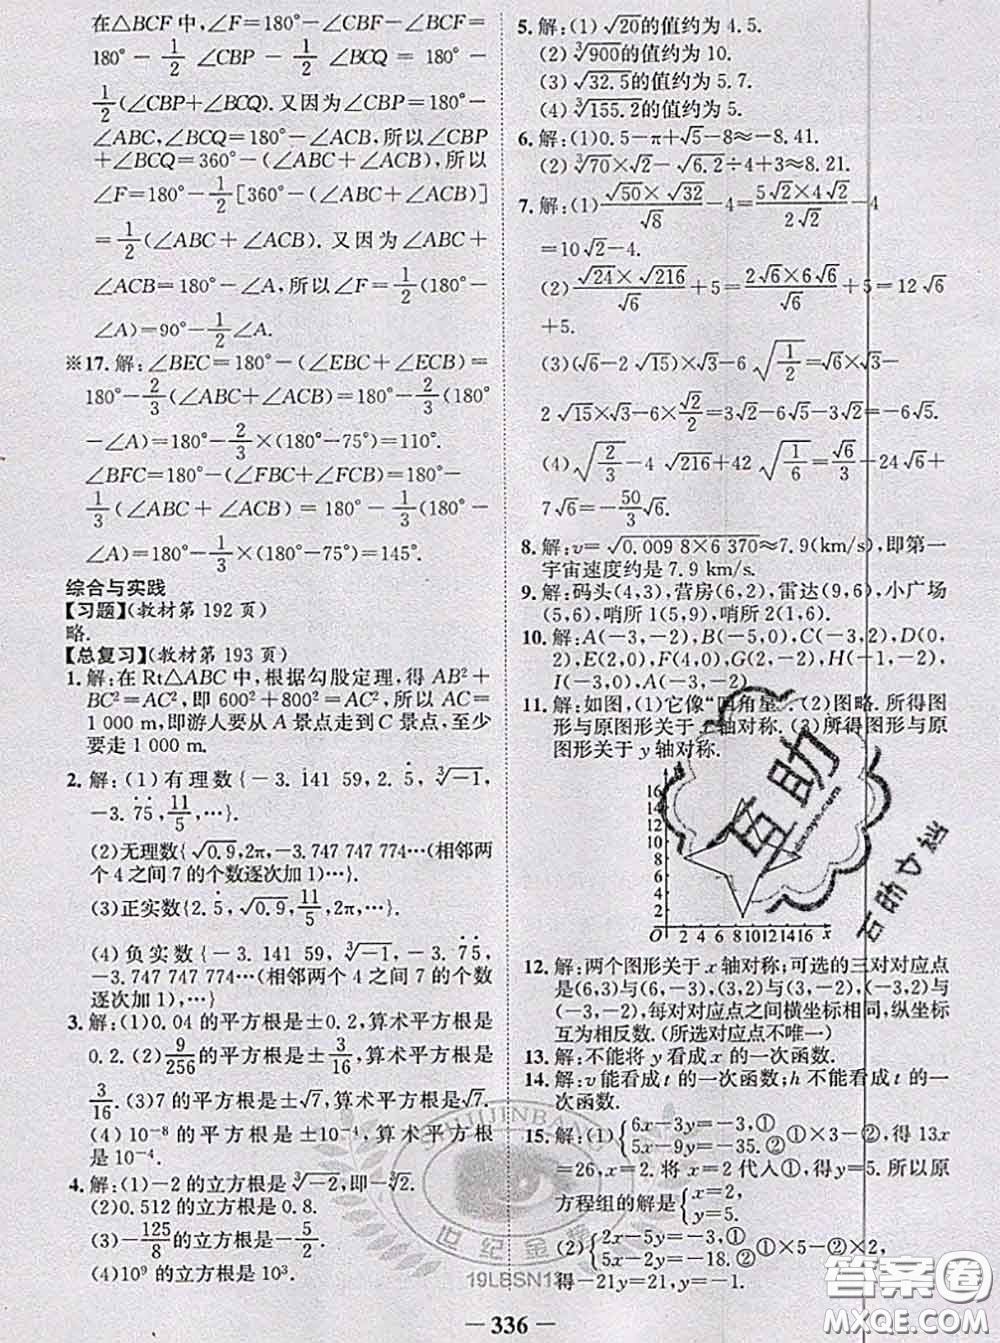 在△BCF中,∠F=180°-∠CBF-∠BCF=
180°-1/2∠CBP-1/2∠BCQ=180°-
1/2(∠CBP+∠BCQ).又因为∠CBP=180°-
∠ABC,∠BCQ=180°-∠ACB,所以∠CBP
+∠BCQ=360°-(∠ABC+∠ACB),所以
∠F=180°-1/2[360°-(∠ABC+∠ACB)]
=1/2(∠ABC+∠ACB).又因为∠ABC+
∠ACB=180°-∠A,所以∠F=1/2(180°-
∠A)=90°-1/2∠A.
※17.解:∠BEC=180°-(∠EBC+∠ECB)=
180°-2/3(∠ABC+∠ACB)=180°-2/3(180°
-∠A)=180°-2/3×(180°-75°)=110°.
∠BFC=180°-(∠FBC+∠FCB)=180°-
1/3(∠ABC+∠ACB)=180°-1/3(180°-
∠A)=180°-1/3(180°-75°)=145°.
综合与实践
【习题】(教材第192页)
略.
【总复习】(教材第193页)
1.解:在Rt△ABC中,根据勾股定理,得AB²+
BC²=AC²,即600²+800²=AC²,所以AC=
1 000 m,即游人要从A景点走到C景点,至少
要走1 000 m.
2.解:(1)有理数{-3.141 59,2.5̇,∛-1,
-3.7̇5̇,11/5,…}
(2)无理数{√0.9,2π,-3.747 747 774…(相邻两
个4之间7的个数逐次加1)…}.
(3)正实数{2.5̇,√0.9,11/5,2π,…}.
(4)负实数{-3.141 59,∛-1,-3.7̇5̇,
-3.747 747 774…(相邻两个4之间的7的个数
逐次加1)…}
3.解:(1)0.04的平方根是±0.2,算术平方根是
0.2.(2)9/256的平方根是±3/16,算术平方根是
3/16.(3)7的平方根是±√7,算术平方根是√7.
(4)10⁻⁸的平方根是±10⁻⁴,算术平方根是
10⁻⁴.
4.解:(1)-2的立方根是∛-2,即-∛2.
(2)0.512的立方根是0.8.
(3)-125/8的立方根是-5/2.
(4)10⁹的立方根是10³.
5.解:(1)√20的值约为4.5.
(2)∛900的值约为10.
(3)√32.5的值约为5.7.
(4)∛155.2的值约为5.
6.解:(1)0.5-π+√5-8≈-8.41.
(2)∛70×√2-√6.2÷4+3≈8.21.
7.解:(1)√50×√32/√8-4=5√2×4√2/2√2-4
=10√2-4.
(2)√24×√216/√6+5=2√6×6√6/√6+5=12√6
+5.
(3)(√6-2√15)×√3-6√1/2=√6×√3-
2√15×√3-6×√2/2=3√2-6√5-3√2=-6√5.
(4)√2/3-4√216+42√1/6=√6/3-24√6+
7√6=-50/3√6.
8.解:v=√0.009 8×6 370≈7.9(km/s),即第一
宇宙速度约是7.9 km/s.
9.解:码头(4,3),营房(6,2),雷达(9,3),小广场
(5,6),哨所1(5,9),哨所2(9,7).
10.解:A(-3,-2),B(-5,0),C(0,5),D(0,
2),E(2,0),F(4,0),G(2,-2),H(-1,-2),
I(-3,0),A(-3,-2).
11.解:如图,(1)它像“四角星”.(2)图略.所得图
形与原图形关于x轴对称.(3)所得图形与原
图形关于y轴对称.
16
14
12
10
8
6
4
2
O 2 4 6 8 10 12 14 16 x
12.解:两个图形关于x轴对称;可选的三对对应点
是(6,3)与(6,-3),(3,2)与(3,-2),(-3,2)与
(-3,-2),每对对应点之间横坐标相同,纵坐标
互为相反数.(所选对应点不唯一)
13.解:不能将y看成x的一次函数.
14.解:v能看成t的一次函数;h不能看成t的一
次函数.
15.解:(1){6x-3y=-3,① 5x-9y=-35.② ①×3-②,得13x
=26,x=2.将x=2代入①,得y=5.所以原
方程组的解是{x=2 y=5.
(2){2x-5y=-3,① -4x+y=-18.② ①×2+②,
得-21y=-21,y=1.
336
19LBSN1
世纪金榜
互助
答案圈
MXQE.COM